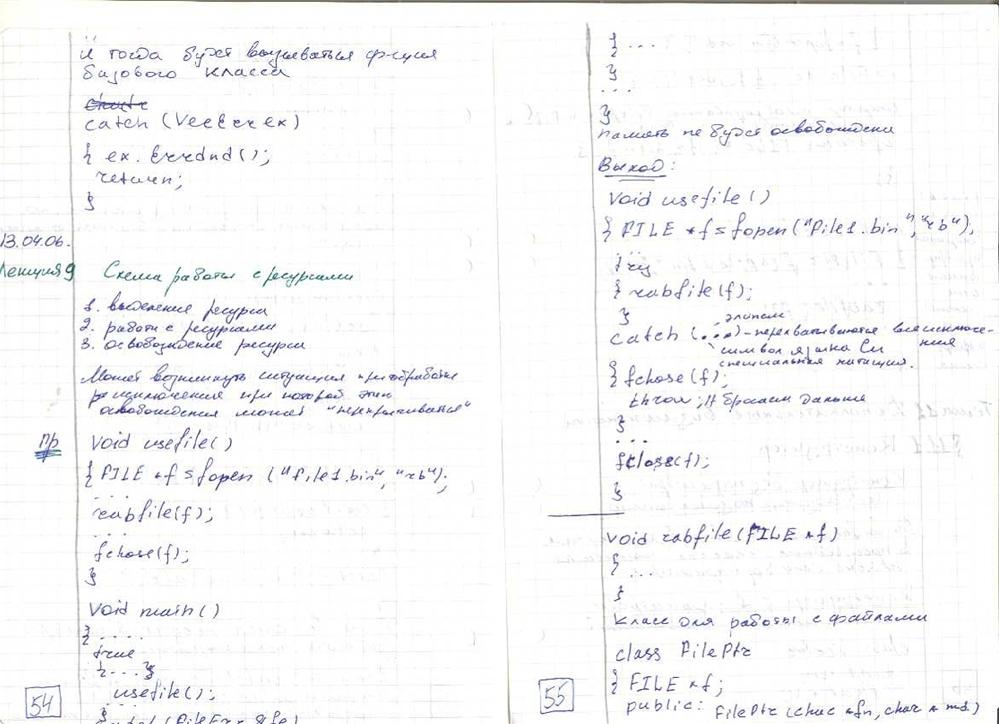 И тогда будет вызываться ф-ция
базового класса
catch (VecErr ex)
{ ex. Errdnd();
return;
}
13.04.06.
Лекция 9 Схема работы с ресурсами
1. выделение ресурса
2. работа с ресурсами
3. освобождение ресурса
Может возникнуть ситуация при обработке
исключения при которой этап
освобождения может "перепрыгиваться"
пр void usefile()
{ FILE *f = fopen ("file1.bin", "rb");
...
rabfile(f);
...
fchose(f);
}
void main()
{ ...
true
{...}
usefile();
54
{ ...
}
...
}
память не будет освобождена
Выход:
void usefile()
{ FILE *f = fopen("File1.bin", "rb");
...
try
{ rabfile(f);
}
catch (...) - перехватываются все исключе-
ния
символ языка Си
специальная
{ fchose(f);
throw; // бросаем дальше
}
...
fclose(f);
}
void rabfile(FILE *f)
{ ...
}
класс для работы с файлами
class FilePtr
{ FILE *f;
public: FilePtr (char *fn, char * md).
55